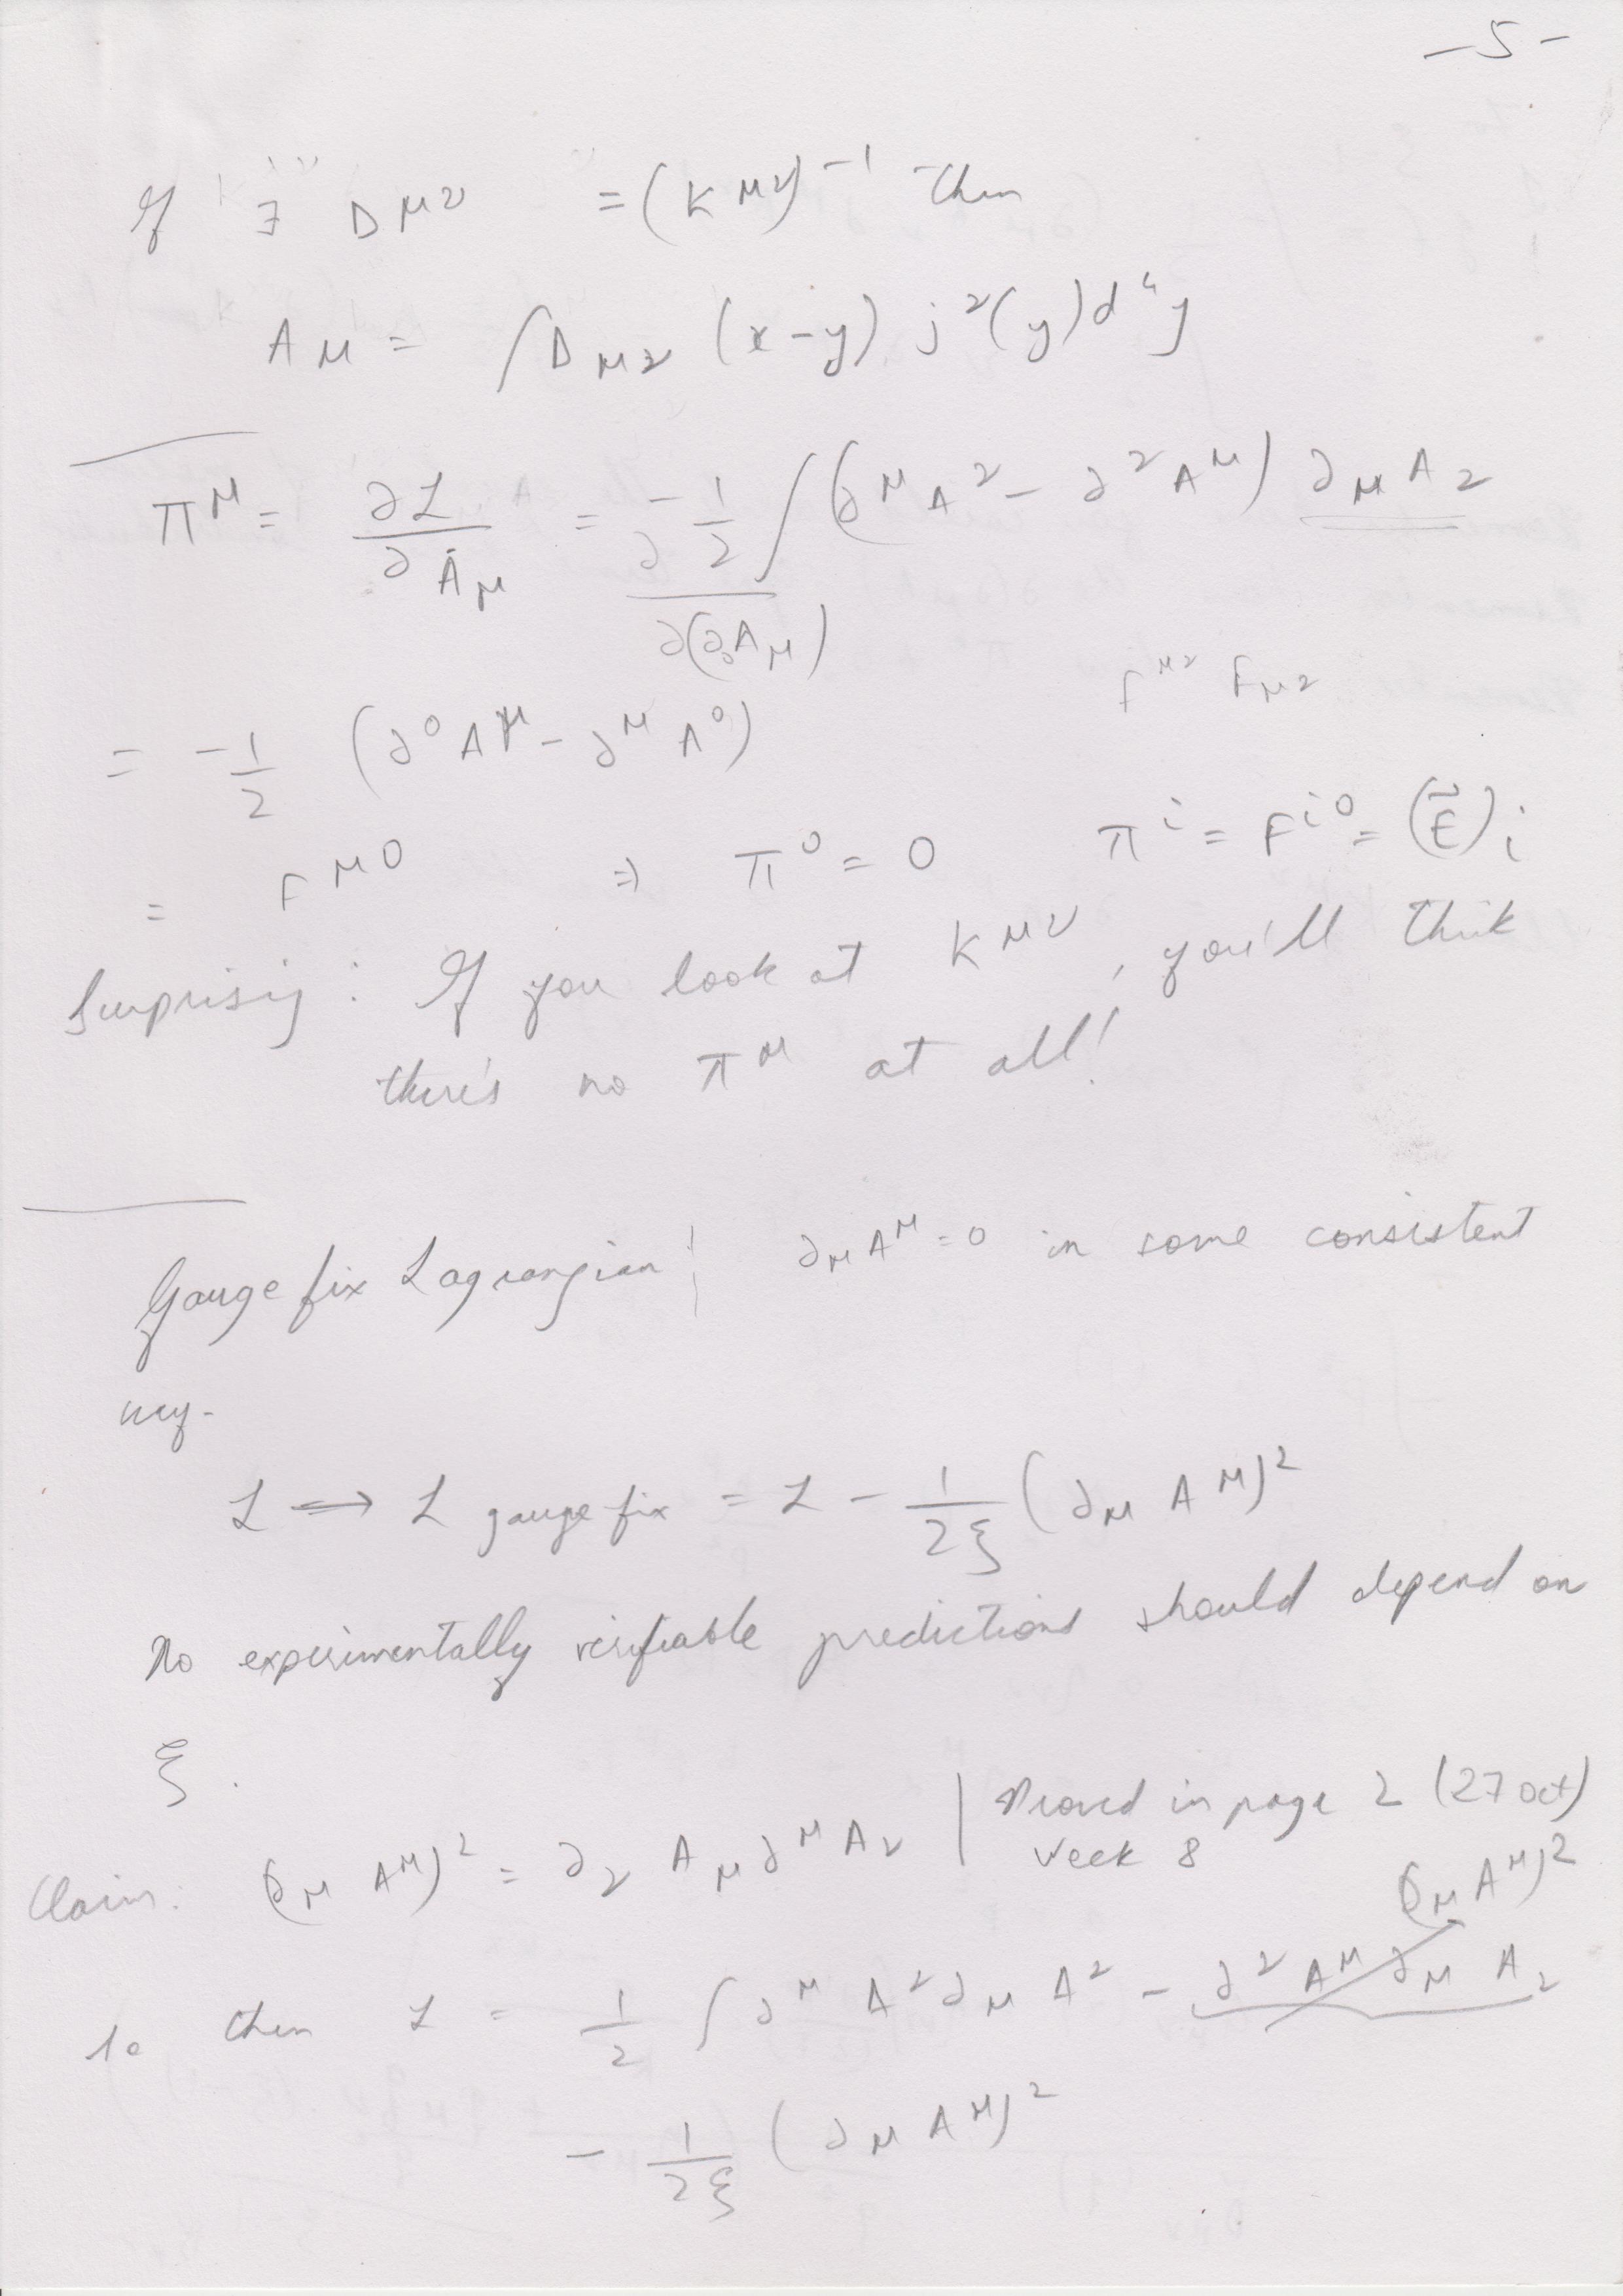 -5-
If ∃ D^μν = (K^μν)^-1 then
A_μ = ∫ D_μν (x-y) j^ν(y) d^4y
π^μ = ∂L/∂Ȧ_μ = ∂/∂(∂_0 A_μ) -1/2 ∫ (∂^μ A^ν - ∂^ν A^μ) ∂_μ A_ν
F^μν F_μν
= -1/2 (∂^0 A^μ - ∂^μ A^0)
= F^μ0 ⇒ π^0 = 0 π^i = F^i0 = (E⃗)_i
Surprising: If you look at K^μν, you'll think
there's no π^μ at all!
Gauge fix Lagrangian! ∂_μ A^μ = 0 in some consistent
way.
L → L gauge fix = L - 1/2ξ (∂_μ A^μ)^2
No experimentally verifiable predictions should depend on
ξ.
Claim: (∂_μ A^μ)^2 = ∂_ν A_μ ∂^μ A_ν | Proved in page 2 (27 Oct)
Week 8
(∂_μ A^μ)^2
So then L = 1/2 ∫ ∂^μ A^ν ∂_μ A^ν - ∂^ν A^μ ∂_μ A_ν
- 1/2ξ (∂_μ A^μ)^2